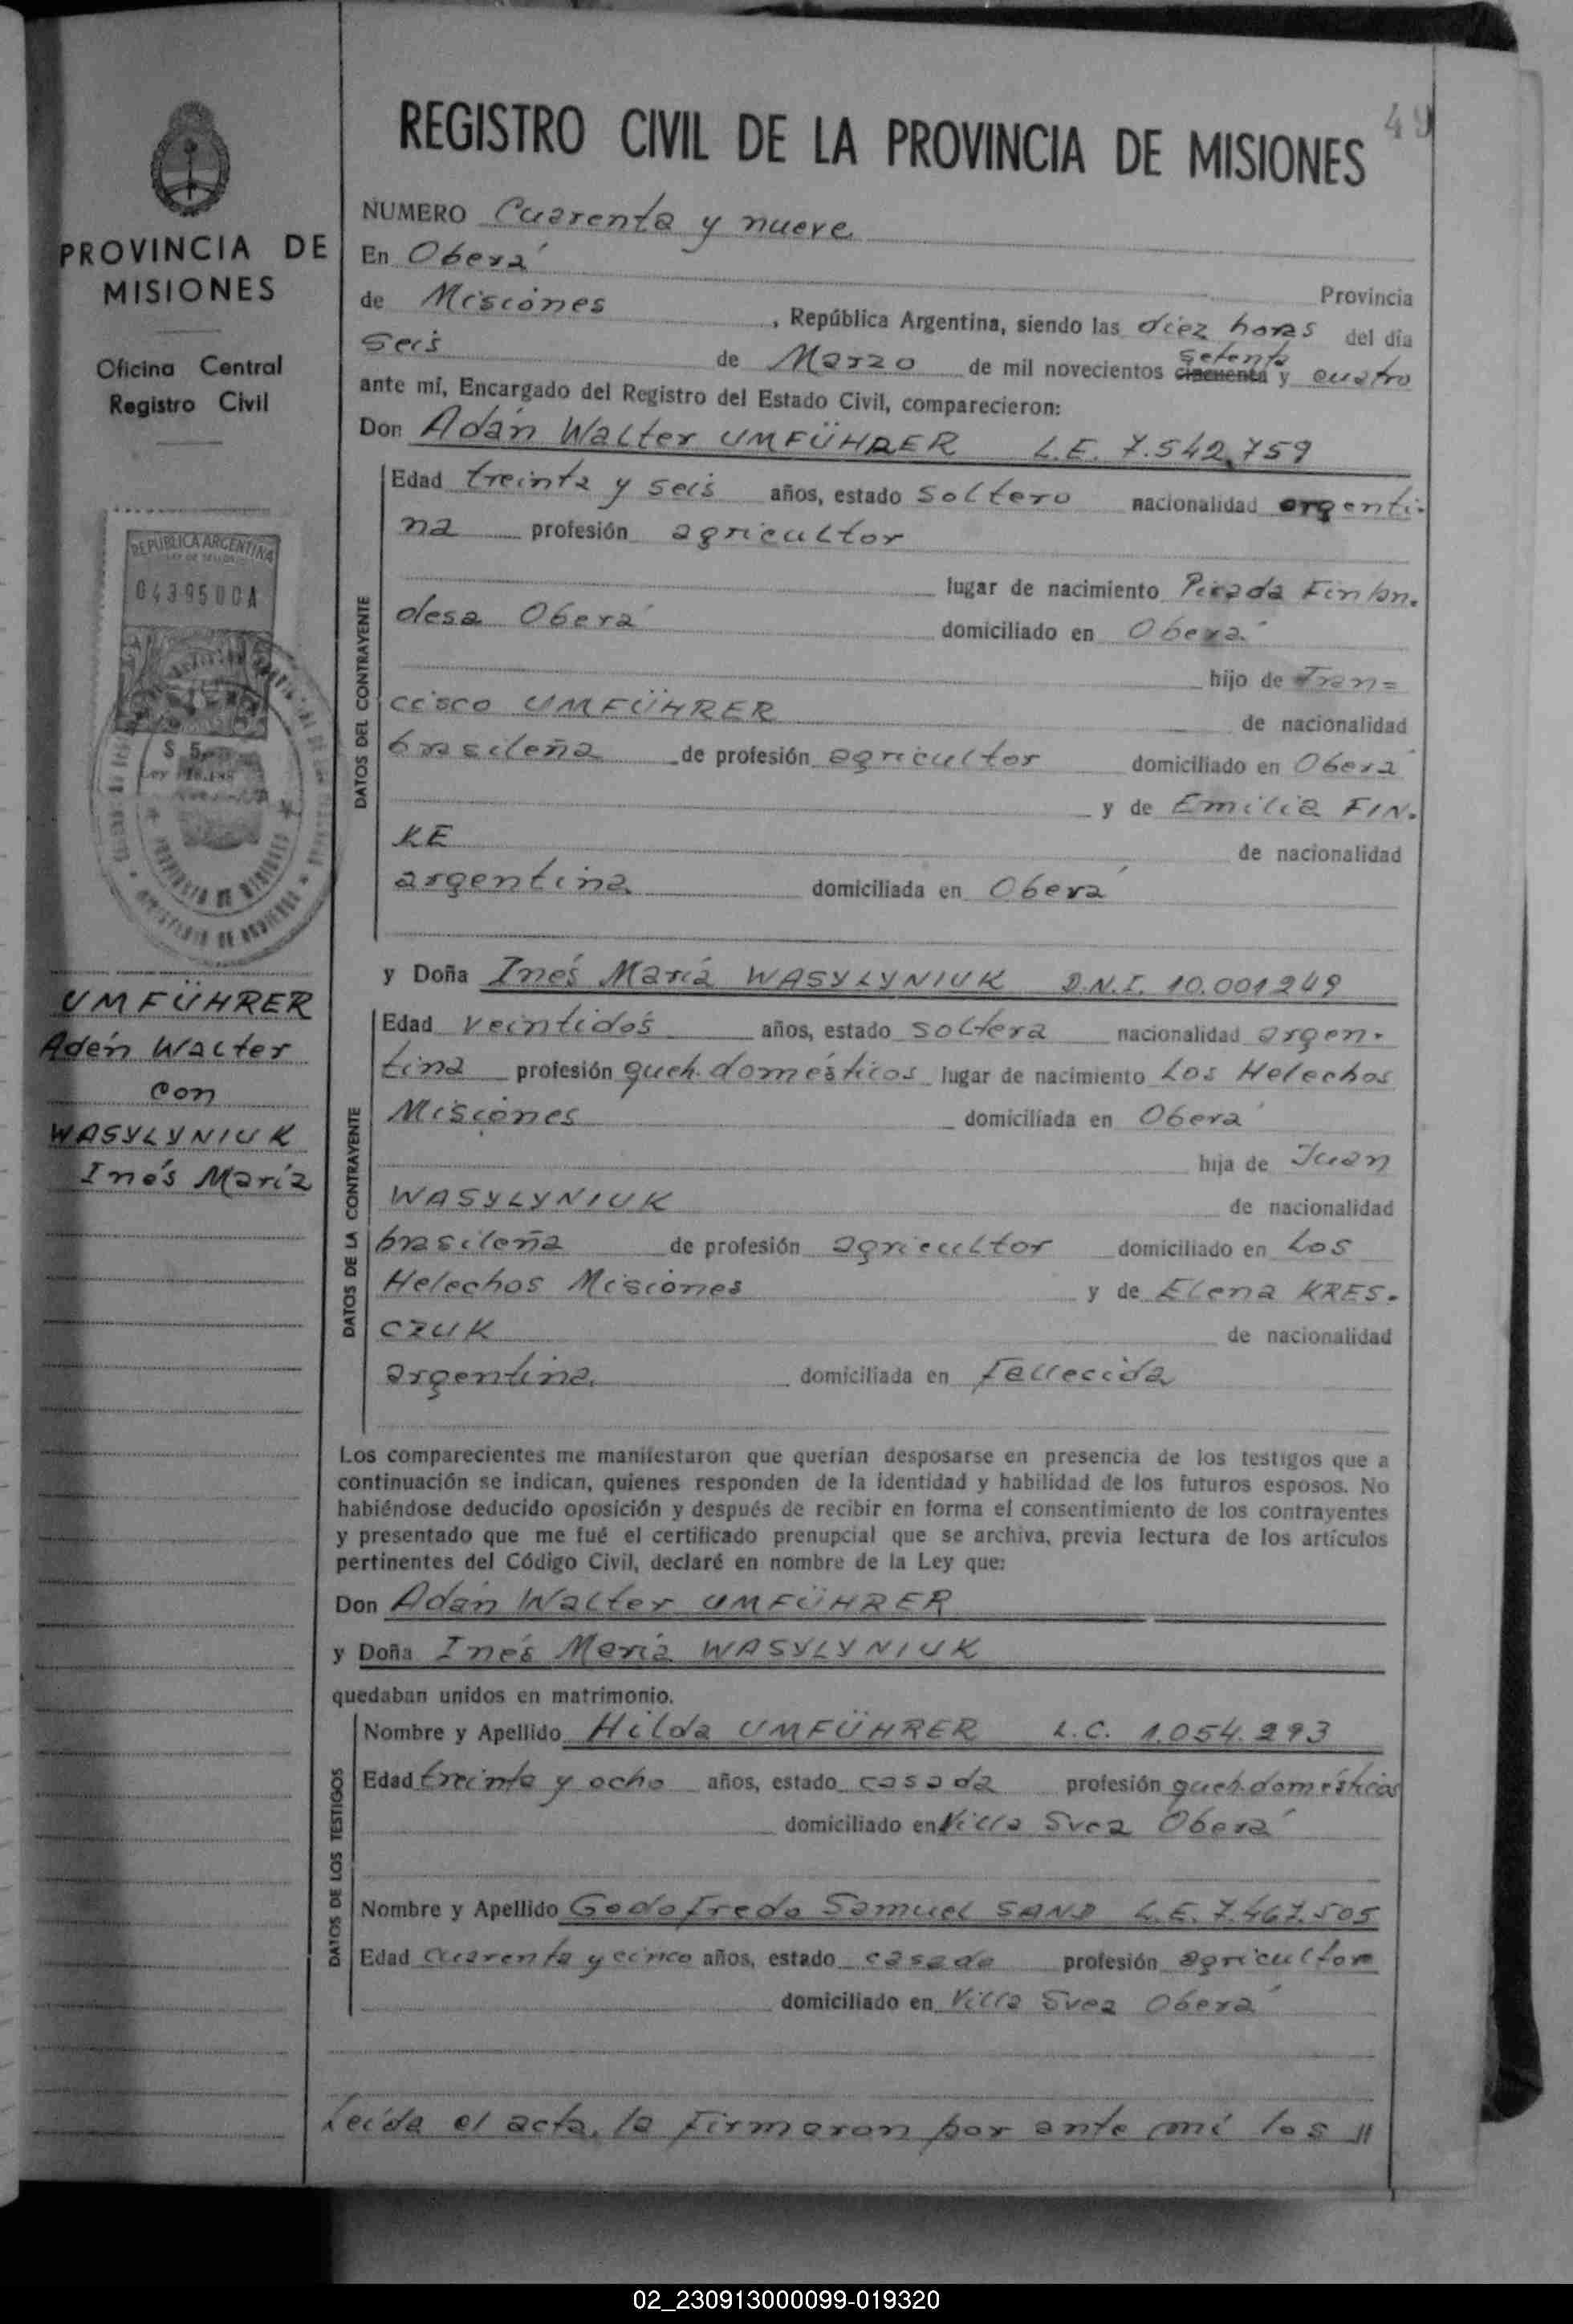 49
REGISTRO CIVIL DE LA PROVINCIA DE MISIONES
PROVINCIA DE
MISIONES
Oficina Central
Registro Civil
REPUBLICA ARGENTINA
LEY DE SELLOS
043950DA
$ 5
PROVINCIA DE MISIONES
UMFÜHRER
Adán Walter
con
WASYLYNIUK
Inés María
NUMERO Cuarenta y nueve
En Oberá
Provincia
de Misiones, República Argentina, siendo las diez horas del día
seis de Marzo de mil novecientos setenta cincuenta y cuatro
ante mí, Encargado del Registro del Estado Civil, comparecieron:
Don Adán Walter UMFÜHRER L.E. 7.542.759
DATOS DEL CONTRAYENTE
Edad treinta y seis años, estado soltero nacionalidad argenti-
na profesión agricultor
lugar de nacimiento Picada Finlan-
desa Oberá domiciliado en Oberá
hijo de Fran=
cisco UMFÜHRER de nacionalidad
brasileña de profesión agricultor domiciliado en Oberá
y de Emilia FIN-
KE de nacionalidad
argentina domiciliada en Oberá
y Doña Inés María WASYLYNIUK D.N.I. 10.001249
DATOS DE LA CONTRAYENTE
Edad veintidós años, estado soltera nacionalidad argen-
tina profesión queh. domésticos lugar de nacimiento Los Helechos
Misiones domiciliada en Oberá
hija de Juan
WASYLYNIUK de nacionalidad
brasileña de profesión agricultor domiciliado en Los
Helechos Misiones y de Elena KRES-
CZUK de nacionalidad
argentina domiciliada en Fallecida
Los comparecientes me manifestaron que querían desposarse en presencia de los testigos que a
continuación se indican, quienes responden de la identidad y habilidad de los futuros esposos. No
habiéndose deducido oposición y después de recibir en forma el consentimiento de los contrayentes
y presentado que me fué el certificado prenupcial que se archiva, previa lectura de los artículos
pertinentes del Código Civil, declaré en nombre de la Ley que:
Don Adán Walter UMFÜHRER
y Doña Inés María WASYLYNIUK
quedaban unidos en matrimonio.
DATOS DE LOS TESTIGOS
Nombre y Apellido Hilda UMFÜHRER L.C. 1.054.293
Edad treinta y ocho años, estado casada profesión queh. domésticos
domiciliado en Villa Svea Oberá
Nombre y Apellido Godofredo Samuel SAND L.E. 7.467.505
Edad cuarenta y cinco años, estado casado profesión agricultor
domiciliado en Villa Svea Oberá
Leída el acta, la firmaron por ante mí los //
02_230913000099-019320